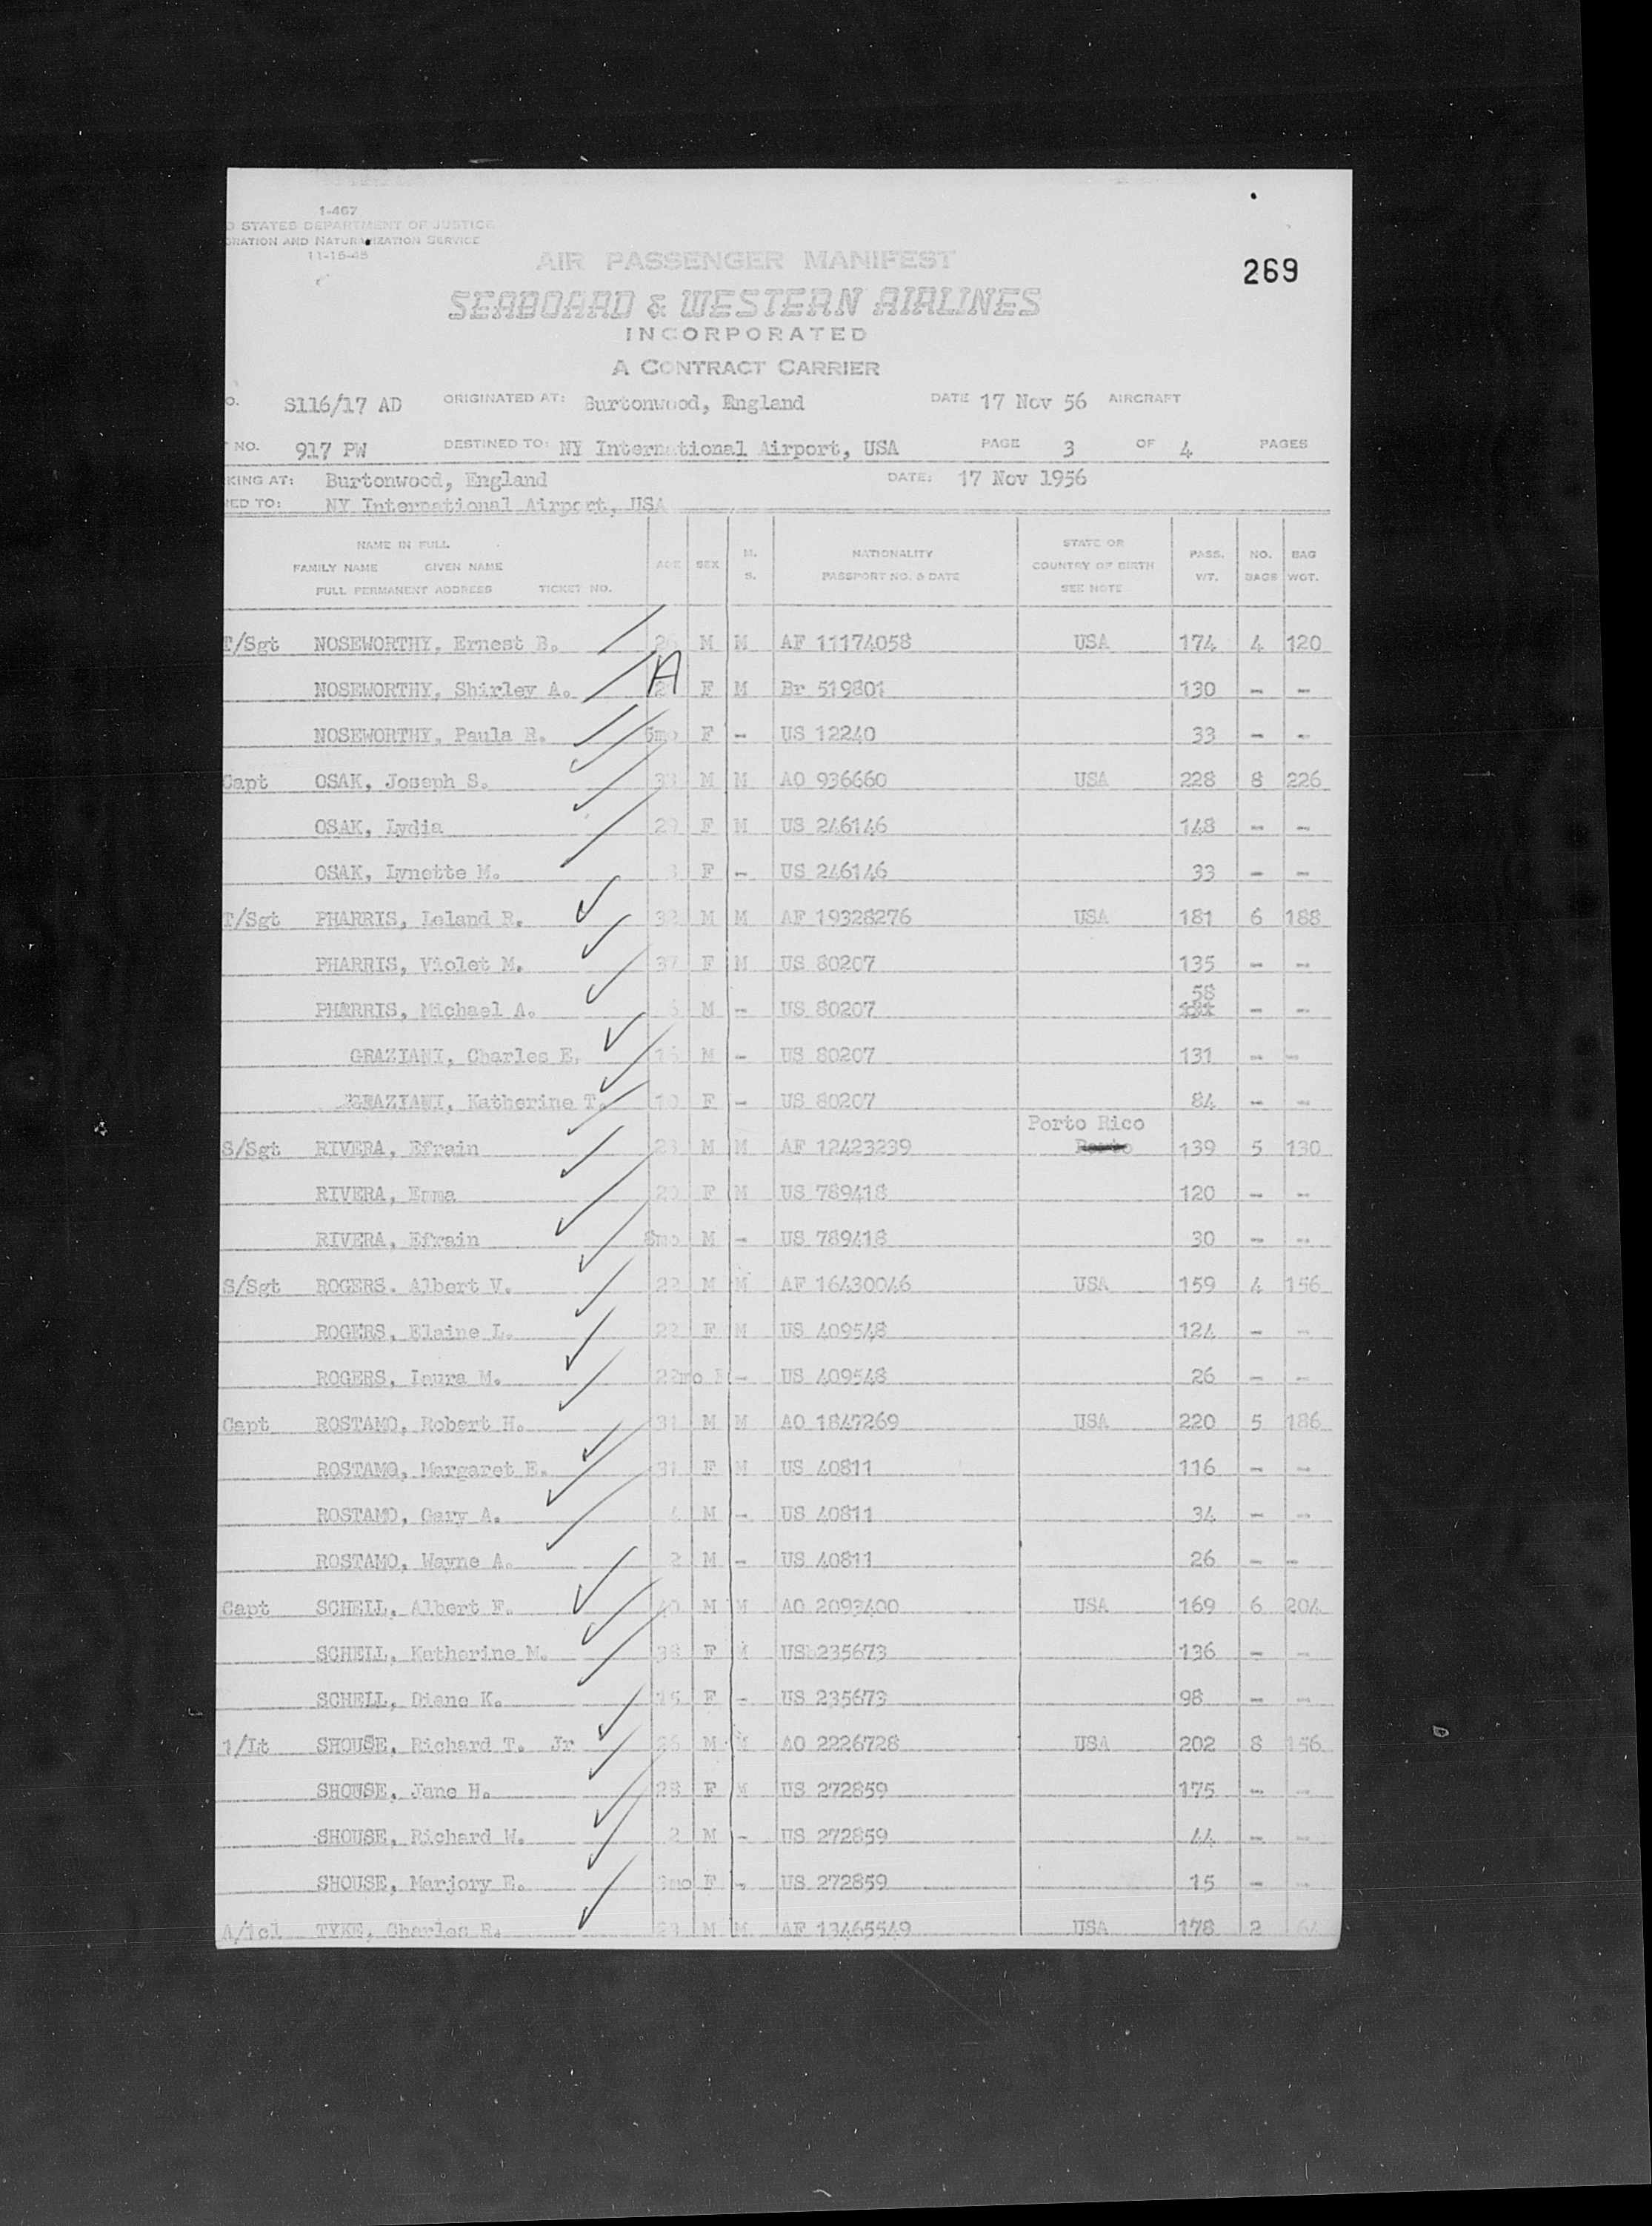 1-467
STATES DEPARTMENT OF JUSTICE
RATION AND NATURALIZATION SERVICE
11-15-45
269
AIR PASSENGER MANIFEST
SEABOARD & WESTERN AIRLINES
INCORPORATED
A CONTRACT CARRIER
O. S116/17 AD ORIGINATED AT: Burtonwood, England DATE 17 Nov 56 AIRCRAFT
NO. 917 PW DESTINED TO: NY International Airport, USA PAGE 3 OF 4 PAGES
KING AT: Burtonwood, England DATE: 17 Nov 1956
ED TO: NY International Airport, USA
NAME IN FULL FAMILY NAME GIVEN NAME FULL PERMANENT ADDRESS TICKET NO. AGE SEX M. S. NATIONALITY PASSPORT NO. & DATE STATE OR COUNTRY OF BIRTH SEE NOTE PASS. WT. NO. BAGS BAG WGT.
T/Sgt NOSEWORTHY, Ernest B. M M AF 11174058 USA 174 4 120
NOSEWORTHY, Shirley A. A F M Br 519801 130 - -
NOSEWORTHY, Paula R. 6mo F - US 12240 33 - -
Capt OSAK, Joseph S. 33 M M AO 936660 USA 228 8 226
OSAK, Lydia 29 F M US 246146 148 - -
OSAK, Lynette M. 3 F - US 246146 33 - -
T/Sgt PHARRIS, Leland R. 32 M M AF 19328276 USA 181 6 188
PHARRIS, Violet M. 37 F M US 80207 135 - -
PHARRIS, Michael A. M - US 80207 58 - -
GRAZIANI, Charles E. M - US 80207 131 - -
GRAZIANI, Katherine T. 10 F - US 80207 84 - -
Porto Rico
S/Sgt RIVERA, Efrain 23 M M AF 12423239 139 5 130
RIVERA, Emma 20 F M US 789418 120 - -
RIVERA, Efrain 8mo M - US 789418 30 - -
S/Sgt ROGERS. Albert V. 22 M M AF 16430046 USA 159 4 156
ROGERS, Elaine L. 22 F M US 409548 124 - -
ROGERS, Laura M. 22mo F - US 409548 26 - -
Capt ROSTAMO, Robert H. 31 M M AO 1847269 USA 220 5 186
ROSTAMO, Margaret E. 31 F M US 40811 116 - -
ROSTAMO, Gary A. 4 M - US 40811 34 - -
ROSTAMO, Wayne A. 2 M - US 40811 26 - -
Capt SCHELL, Albert F. 40 M M AO 2093400 USA 169 6 204
SCHELL, Katherine M. 38 F M US 235673 136 - -
SCHELL, Diane K. F - US 235673 98 - -
1/Lt SHOUSE, Richard T. Jr 26 M M AO 2226728 USA 202 8 156
SHOUSE, Jane H. 28 F M US 272859 175 - -
SHOUSE, Richard W. 2 M - US 272859 44 - -
SHOUSE, Marjory E. 3mo F - US 272859 15 - -
A/1cl TYKE, Charles R. 23 M M AF 13465549 USA 178 2 64